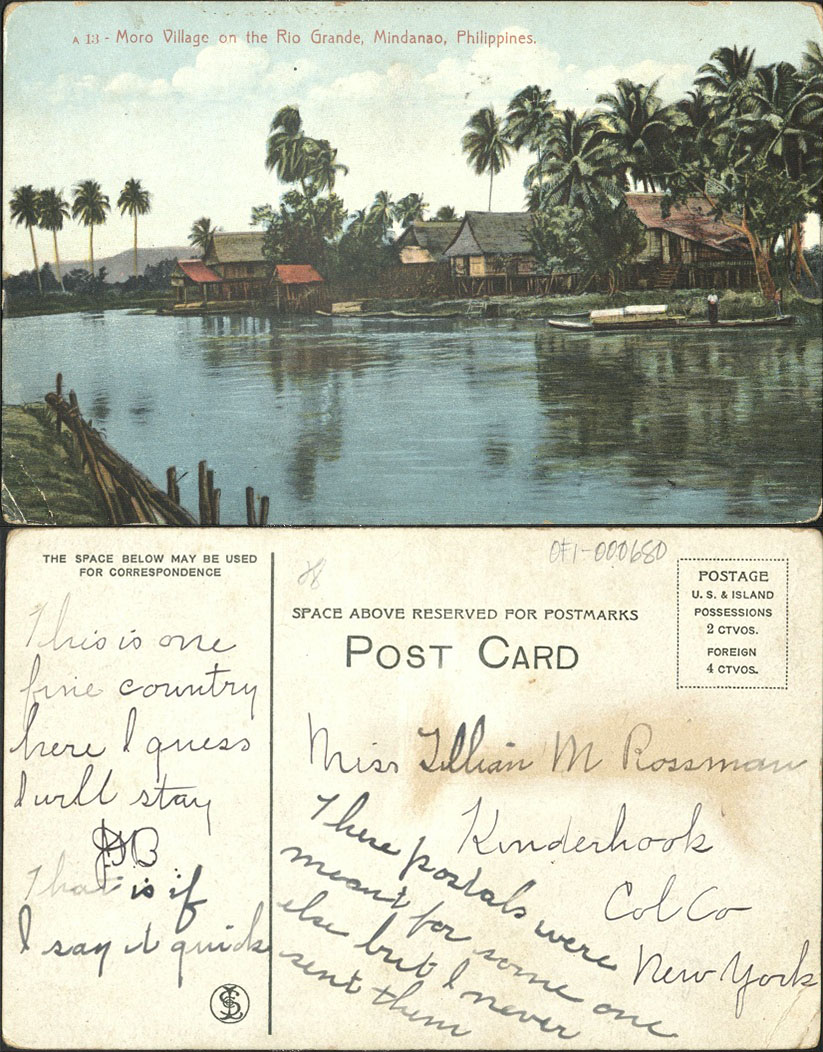 A 13 - Moro Village on the Rio Grande, Mindanao, Philippines.
THE SPACE BELOW MAY BE USED
FOR CORRESPONDENCE
This is one
fine country
here I guess
I will stay
That is if
I say it quick
OF1-000680
SPACE ABOVE RESERVED FOR POSTMARKS
POST CARD
POSTAGE
U. S. & ISLAND
POSSESSIONS
2 CTVOS.
FOREIGN
4 CTVOS.
Miss Lillian M Rossman
Kinderhook
Col Co
New York
These postals were
meant for some one
else but I never
sent them